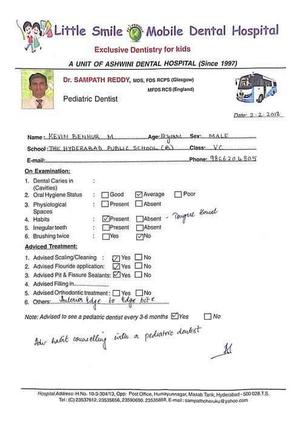 Little Smile Mobile Dental Hospital
Exclusive Dentistry for kids
A UNIT OF ASHWINI DENTAL HOSPITAL (Since 1997)
Dr. SAMPATH REDDY, MDS, FDS RCPS (Glasgow)
MFDS RCS (England)
Pediatric Dentist
Date: 2.2.2018
Name: KEVIN BENHUR M. Age: Sex: MALE
School: THE HYDERABAD PUBLIC SCHOOL Class: VC
E-mail: Phone:
On Examination:
1. Dental Caries in :
(Cavities)
2. Oral Hygiene Status : Good Average Poor
3. Physiological : Present Absent
Spaces
4. Habits : Present Absent - Tongue thrust
5. Irregular teeth : Present Absent
6. Brushing twice : Yes No
Adviced Treatment:
1. Advised Scaling/Cleaning : Yes No
2. Advised Flouride application: Yes No
3. Advised Pit & Fissure Sealants: Yes No
4. Advised Filling in
5. Advised Orthodontic treatment: Yes No
6. Others: Anterior Edge to Edge bite
Note: Advised to see a pediatric dentist every 3-6 months Yes No
Adv habit counselling with a pediatric dentist
Hospital Address: H.No. 10-3-304/13, Opp: Post Office, Humayunnagar, Masab Tank, Hyderabad - 500 028 T.S.
Tel: (C) 23537612, 23535656, 23590690, 23535868, E-mail: sampathchiruku@yahoo.com